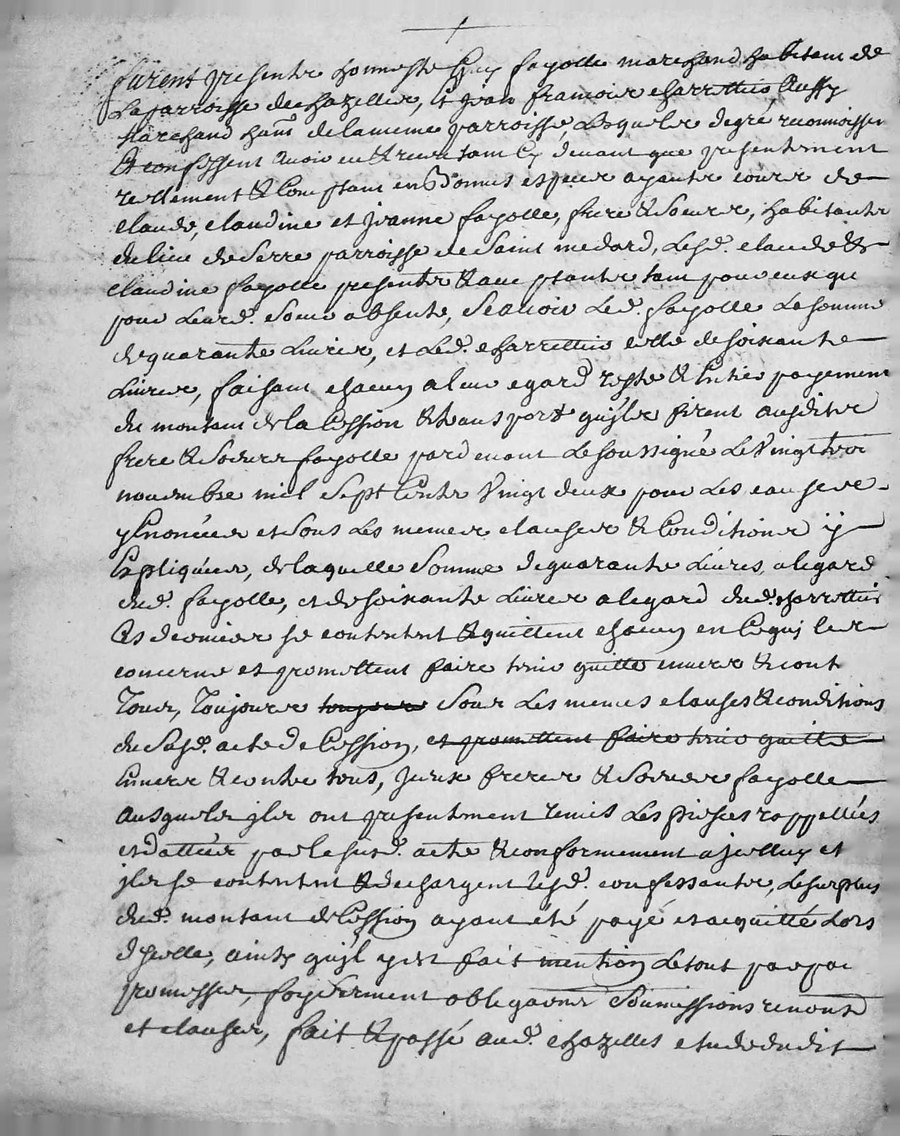 furent presents honneste Guy fayolle marchand habitant de
la parroisse de chazelles, et jean francois charretties aussy
marchand hant de la meme parroisse, lesquels de gré reconnoissent
et confessent avoir eu et receu tant cy devant que presentement
reellement et comptant en bonnes especes ayants cours de
claude, claudine et jeanne fayolle, frere et soeurs, habitants
du lieu de serre parroisse de saint medard, lesd. claude et
claudine fayolle presents et acceptants tant pour eux que
pour leurd. soeur absente, scavoir led. fayolle la somme
de quarante livres, et led. charretties celle de soixante
livres, faisant chacun a leur egard reste et entier payement
du montant de la cession et transport qu'jls firent ausdits
frere et soeurs fayolle pardevant le soussigné le vingt trois
novembre mil sept cents vingt deux pour les causes
y enoncées et sous les memes clauses et conditions y
expliquées, de laquelle somme de quarante livres a legard
dud. fayolle, et de soixante livres a legard dud. charretties
ces derniers se contentent et quittent chacun en ce qui les
concerne et promettent faire tenir quitte envers et cont
tous, toujours toujours sous les memes clauses et conditions
du susd. acte de cession, et promettent faire tenir quitte
envers et contre tous, jceux freres et soeurs fayolle
ausquels jls ont presentement remis les pieces rappellées
et dattées par le susd. acte et conformement a jcelluy et
jls se contentent et dechargent lesd. confessants, le surplus
dud. montant de cession ayant été payé et acquitté lors
d'jcelle, ainsy qu'jl y est fait mention de tout par
promesses, foy serment obligaons soumissions renonc
et clauses, fait et passé aud. chazelles etude dudit